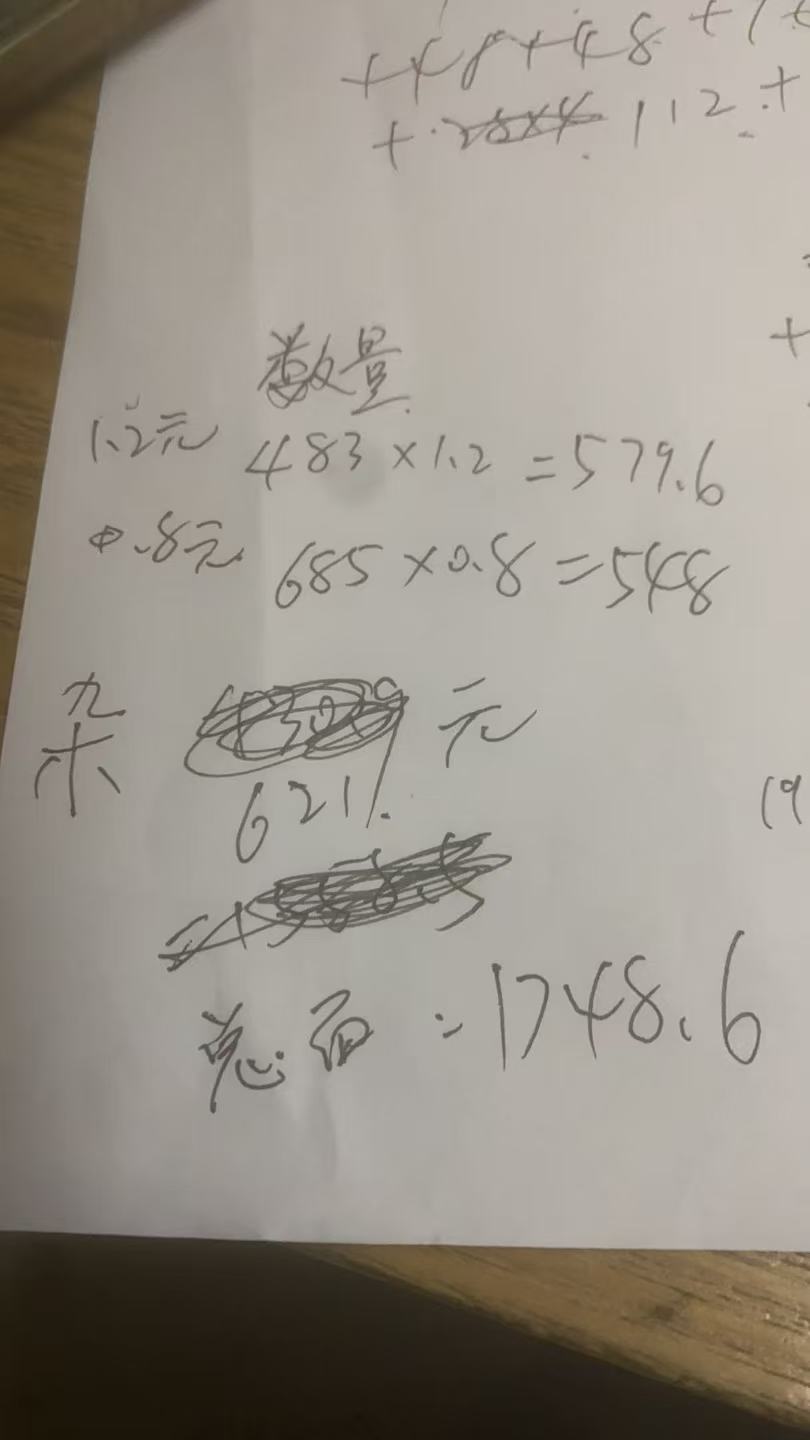 +48+48+1
+ 112 +
+
数量
1.2元 483×1.2=579.6
0.8元 685×0.8=548
杂 元
621
(9
总 =1748.6